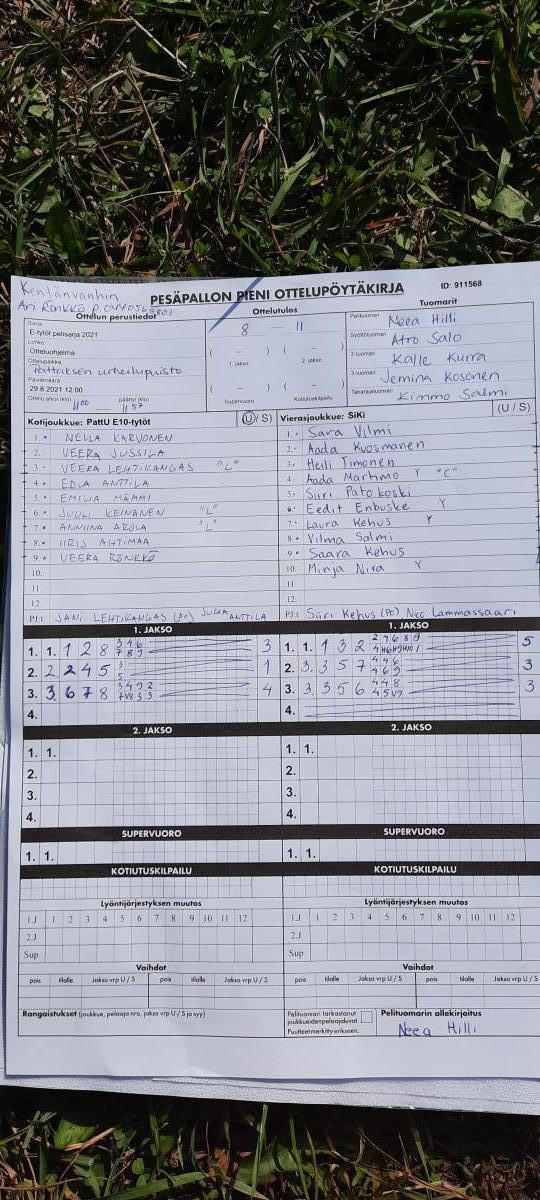 Kentänvanhin
PESÄPALLON PIENI OTTELUPÖYTÄKIRJA
ID: 911568
Ari Rönkkö p.
Ottelun perustiedot
Sarja
E-tytöt pelisarja 2021
Lohko
Otteluohjelma
Ottelupaikka
Pattaksen urheilupuisto
Päivämäärä
29.8.2021 12:00
Ottelu alkoi (klo) 11 00 päättyi (klo) 11 57
Ottelutulos
8 – 11
( – ) ( – )
1. jakso 2. jakso
( – ) ( – )
Supervuoro Kotiutuskilpailu
Tuomarit
Pelituomari Neea Hilli
Syöttötuomari Atro Salo
2-tuomari Kalle Kurra
3-tuomari Jemina Kosonen
Takarajatuomari Kimmo Salmi
Kotijoukkue: PattU E10-tytöt (U / S)
1. NELLA KARVONEN
2. VEERA JUSSILA
3. VEERA LEHTIKANGAS "L"
4. EDLA ANTTILA
5. EMILIA MÄMMI
6. JUULI KEINÄNEN "L"
7. ANNIINA AROLA "L"
8. IIRIS AHTIMAA
9. VEERA RÖNKKÖ
10.
11.
12.
PJ: JANI LEHTIKANGAS (PO) JUHA ANTTILA
Vierasjoukkue: SiKi (U / S)
1. Sara Vilmi
2. Aada Kuosmanen
3. Heili Timonen
4. Aada Martimo Y "C"
5. Siiri Patokoski
6. Eedit Enbuske Y
7. Laura Kehus Y
8. Vilma Salmi
9. Saara Kehus
10. Minja Niva Y
11.
12.
PJ: Siiri Kehus (PO) Nico Lammassaari
1. JAKSO 1. JAKSO
1. 1. 1 2 8 3
2. 2 2 4 5 1
3. 3 6 7 8 4
4.
1. 1. 1 3 2 5
2. 3. 3 5 7 3
3. 3. 3 5 6 3
4.
2. JAKSO 2. JAKSO
1. 1. 1. 1.
2. 2.
3. 3.
4. 4.
SUPERVUORO SUPERVUORO
1. 1. 1. 1.
KOTIUTUSKILPAILU KOTIUTUSKILPAILU
Lyöntijärjestyksen muutos Lyöntijärjestyksen muutos
1.J 1 2 3 4 5 6 7 8 9 10 11 12 1.J 1 2 3 4 5 6 7 8 9 10 11 12
2.J 2.J
Sup Sup
Vaihdot Vaihdot
pois tilalle Jakso vrp U / S pois tilalle Jakso vrp U / S pois tilalle Jakso vrp U / S pois tilalle Jakso vrp U / S
Rangaistukset (joukkue, pelaaja nro, jakso vrp U / S ja syy)
Pelituomari tarkastanut
joukkueiden pelaajaluvat
Puutteet merkitty erikseen.
Pelituomarin allekirjoitus
Neea Hilli